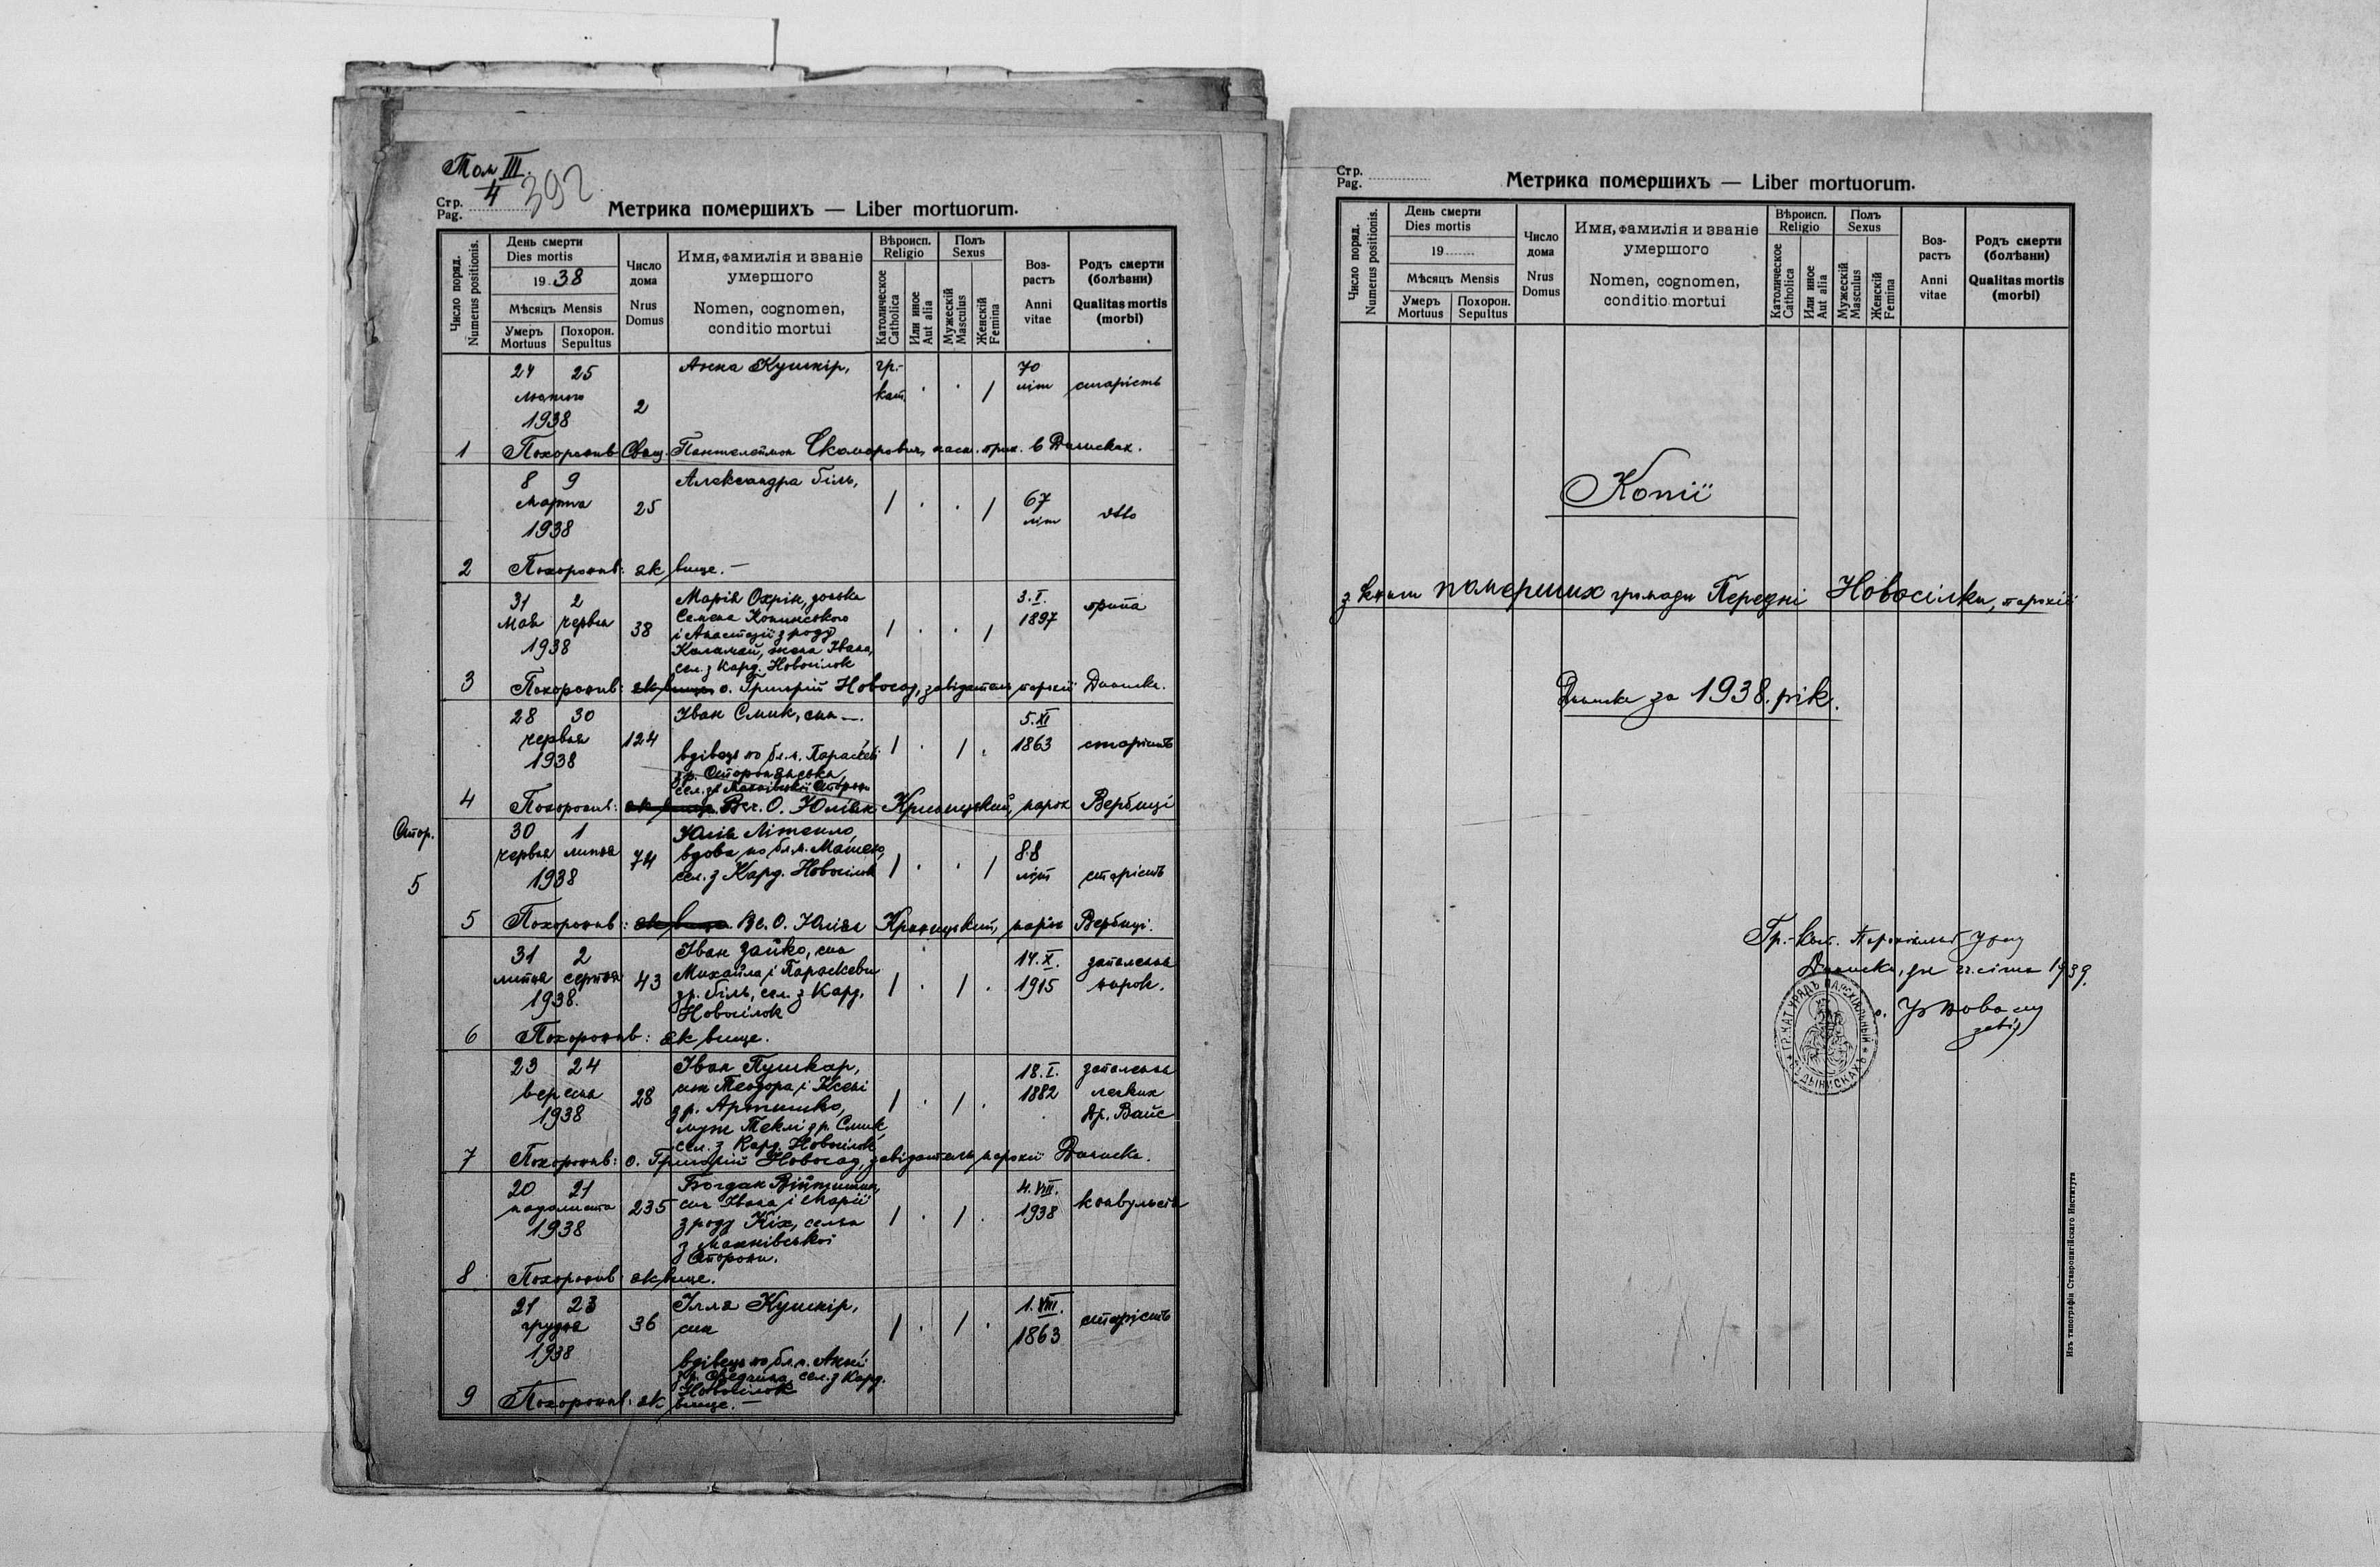 Том III.
4 392
Стр.
Pag.
Метрика помершихъ — Liber mortuorum.
Число поряд.
Numerus positionis.
День смерти
Dies mortis
19 38
Мѣсяцъ Mensis
Умеръ Похорон.
Mortuus Sepultus
Число
дома
Nrus
Domus
Имя, фамилія и званіе
умершого
Nomen, cognomen,
conditio mortui
Вѣроисп.
Religio
Католическое
Catholica
Или иное
Aut alia
Полъ
Sexus
Мужескій
Masculus
Женскій
Femina
Воз-
растъ
Anni
vitae
Родъ смерти
(болѣзни)
Qualitas mortis
(morbi)
24 25
лютого
1938
2
Анна Кушнір,
гр.-
кат.
/
70
літ
старість
1 Похоронив Свящ. Пантелеймон Скоморович, в Динисках.
8 9
марта
1938
25
Александра Біль,
/ . . /
67
літ
dtto
2 Похоронив: як вище. —
31 2
мая червня
1938
38
Марія Охрін, дочка
Семена
і Анастазії з роду
Каламай, жена Івана,
сел. з Кард. Новосілок
/ . . /
3. I.
1897
грипа
3 Похоронив: як вище о. Григорій Новосад, завідатель парохії Диниска.
28 30
червня
1938
124
Іван Смик, син —.
вдівець по бл. п. Параскеві
з р. Сторонянська,
сел. зі Махнівської Сторони
/ . / .
5. XI
1863
старість
4 Похоронив: як вище. Вс. О. Юліян Криницький, парох Вербиці
Стор.
5
30 1
червня липня
1938
74
Юлія Літенло,
вдова по бл. п. Матею,
сел. з Кард. Новосілок
/ . . /
88
літ
старість
5 Похоронив: як вище. Вс. О. Юліян Криницький, парох Вербиці.
31 2
липня серпня
1938.
43
Іван Зайко, син
Михайла і Параскеви
з р. Біль, сел. з Кард.
Новосілок
/ . / .
14. X.
1915
запалення
нирок.
6 Похоронив: як вище.
23 24
вересня
1938
28
Іван Пушкар,
син Теодора і Ксені
з р. Артишко,
муж Теклі з р. Смик
сел. з Кард. Новосілок
/ . / .
18. I.
1882
запалення
легких
Др. Вайс
7 Похоронив: о. Григорій Новосад, завідатель парохії Диниска.
20 21
падолиста
1938
235
Богдан Війтишин,
син Івана і Марії
з роду Кіх, селян
з Махнівської
Сторони.
/ . / .
4. VIII.
1938
конвульсія
8 Похоронив як вище.
21 23
грудня
1938
36
Ілля Кушнір,
син
вдівець по бл. п. Анні
з р. сел. з Кард.
Новосілок
/ . / .
1. VIII.
1863
старість
9 Похоронив: як вище. —
Стр.
Pag.
Метрика помершихъ — Liber mortuorum.
Число поряд.
Numerus positionis.
День смерти
Dies mortis
19
Мѣсяцъ Mensis
Умеръ Похорон.
Mortuus Sepultus
Число
дома
Nrus
Domus
Имя, фамилія и званіе
умершого
Nomen, cognomen,
conditio mortui
Вѣроисп.
Religio
Католическое
Catholica
Или иное
Aut alia
Полъ
Sexus
Мужескій
Masculus
Женскій
Femina
Воз-
растъ
Anni
vitae
Родъ смерти
(болѣзни)
Qualitas mortis
(morbi)
Копії
з книги померших громади Передні Новосілки, парохії
Диниска за 1938. рік.
Гр.-кат. Парохіяльний Уряд
Диниска, дня 22. січня 1939.
о. Гр Новосад
завід
ГР. КАТ. УРЯДЪ ПАРОХІЯЛЬНЫЙ ВЪ ДЫНИСКАХЪ
Изъ типографіи Ставропигійскаго Института